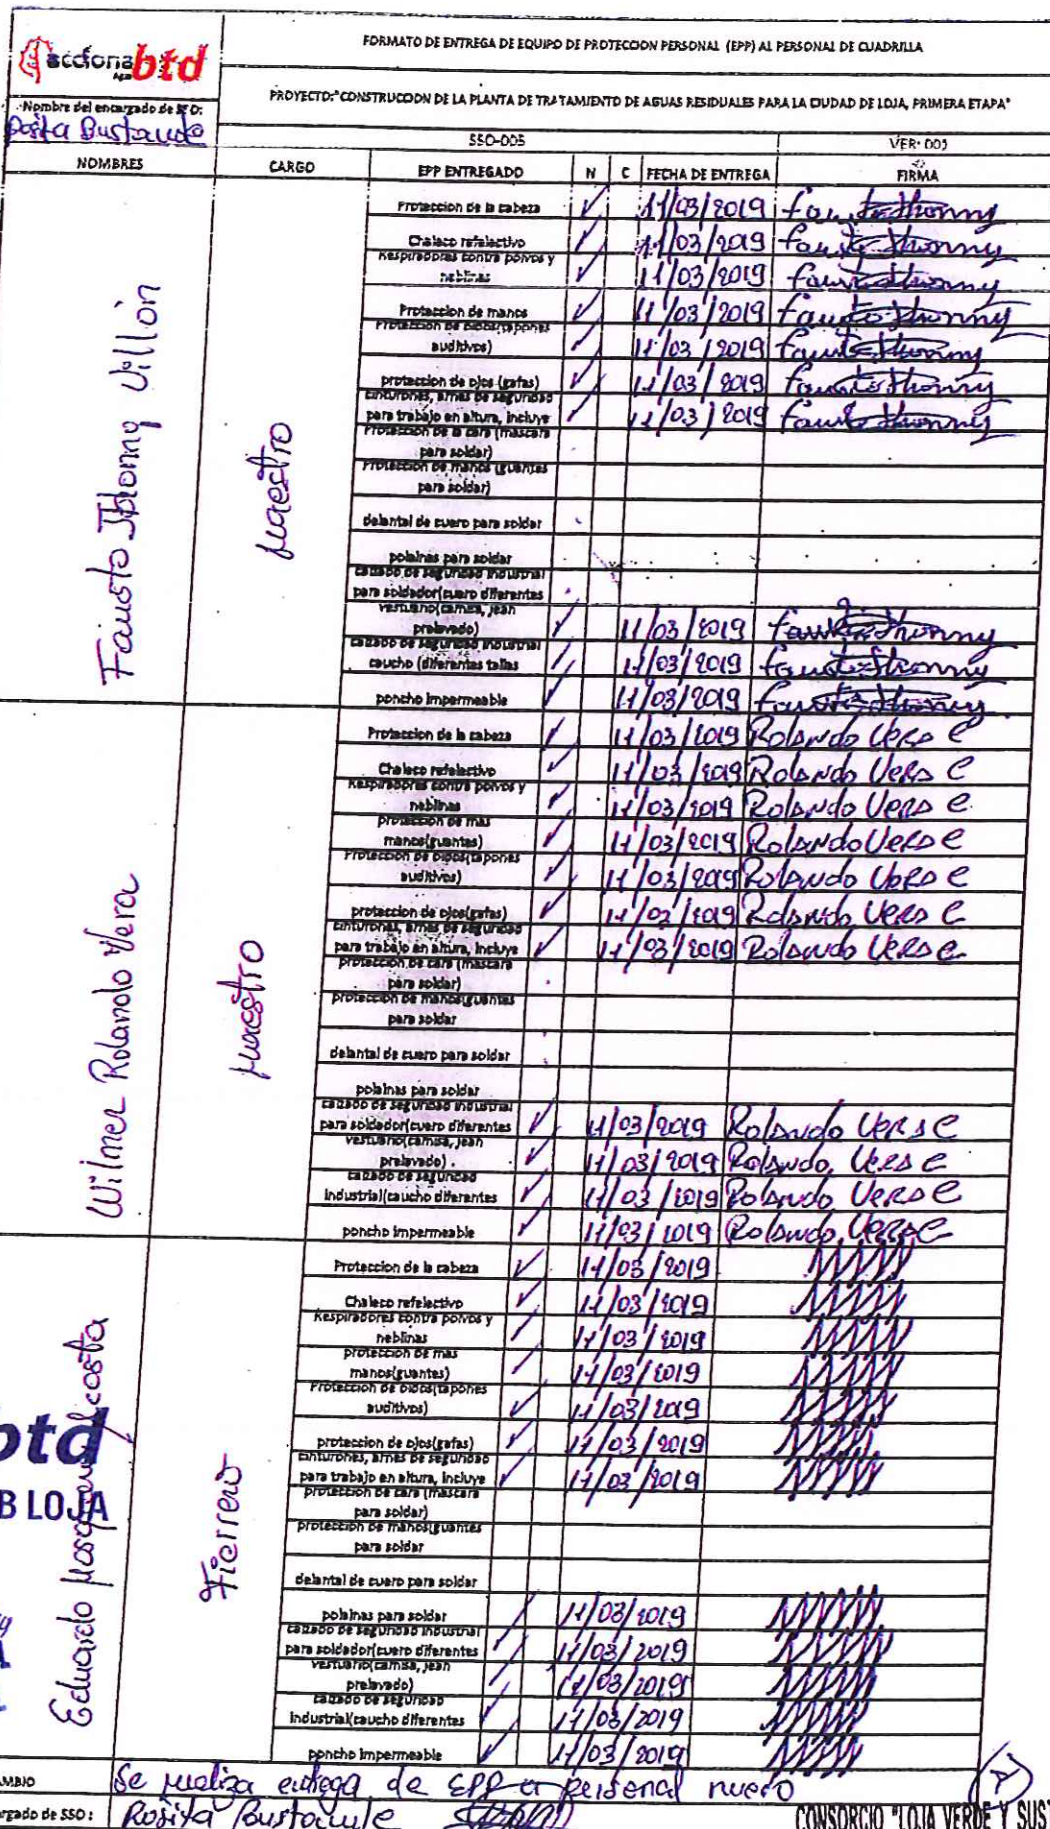 acciona btd
FORMATO DE ENTREGA DE EQUIPO DE PROTECCION PERSONAL (EPP) AL PERSONAL DE CUADRILLA
PROYECTO:"CONSTRUCCION DE LA PLANTA DE TRATAMIENTO DE AGUAS RESIDUALES PARA LA CIUDAD DE LOJA, PRIMERA ETAPA"
Nombre del encargado de SSO:
Rosita Bustamante
SSO-005 VER: 001
NOMBRES CARGO EPP ENTREGADO N C FECHA DE ENTREGA FIRMA
Fausto Jhonny Villón
Maestro
Proteccion de la cabeza ✓ 11/03/2019 Fausto Jhonny
Chaleco refelectivo ✓ 11/03/2019 Fausto Jhonny
Respiradores contra polvos y neblinas ✓ 11/03/2019 Fausto Jhonny
Proteccion de manos ✓ 11/03/2019 Fausto Jhonny
Proteccion de oidos(tapones auditivos) ✓ 11/03/2019 Fausto Jhonny
proteccion de ojos (gafas) ✓ 11/03/2019 Fausto Jhonny
cinturones, arnes de seguridad para trabajo en altura, incluye ✓ 11/03/2019 Fausto Jhonny
Proteccion de la cara (mascara para soldar)
Proteccion de manos (guantes para soldar)
delantal de cuero para soldar
polainas para soldar
calzado de seguridad industrial para soldador(cuero diferentes
vestuario(camisa, jean prelavado) ✓ 11/03/2019 Fausto Jhonny
calzado de seguridad industrial caucho (diferentes tallas ✓ 11/03/2019 Fausto Jhonny
poncho impermeable ✓ 11/03/2019 Fausto Jhonny
Wilmer Rolando Vera
Maestro
Proteccion de la cabeza ✓ 11/03/2019 Rolando Vera C
Chaleco refelectivo ✓ 11/03/2019 Rolando Vera C
Respiradores contra polvos y neblinas ✓ 11/03/2019 Rolando Vera C
proteccion de mas manos(guantes) ✓ 11/03/2019 Rolando Vera C
Proteccion de oidos(tapones auditivos) ✓ 11/03/2019 Rolando Vera C
proteccion de ojos(gafas) ✓ 11/03/2019 Rolando Vera C
cinturones, arnes de seguridad para trabajo en altura, incluye ✓ 11/03/2019 Rolando Vera C
proteccion de cara (mascara para soldar)
proteccion de manos(guantes para soldar
delantal de cuero para soldar
polainas para soldar
calzado de seguridad industrial para soldador(cuero diferentes ✓ 11/03/2019 Rolando Vera C
vestuario(camisa, jean prelavado) . ✓ 11/03/2019 Rolando Vera C
calzado de seguridad industrial(caucho diferentes ✓ 11/03/2019 Rolando Vera C
poncho impermeable ✓ 11/03/2019 Rolando Vera C
Eduardo Mosquera
Fierrero
Proteccion de la cabeza ✓ 11/03/2019
Chaleco refelectivo ✓ 11/03/2019
Respiradores contra polvos y neblinas ✓ 11/03/2019
proteccion de mas manos(guantes) ✓ 11/03/2019
Proteccion de oidos(tapones auditivos) ✓ 11/03/2019
proteccion de ojos(gafas) ✓ 11/03/2019
cinturones, arnes de seguridad para trabajo en altura, incluye ✓ 11/03/2019
proteccion de cara (mascara para soldar)
proteccion de manos(guantes para soldar
delantal de cuero para soldar
polainas para soldar ✓ 11/03/2019
calzado de seguridad industrial para soldador(cuero diferentes ✓ 11/03/2019
vestuario(camisa, jean prelavado) ✓ 11/03/2019
calzado de seguridad industrial(caucho diferentes ✓ 11/03/2019
poncho impermeable ✓ 11/03/2019
btd
B LOJA
MBIO Se realiza entrega de EPP a personal nuevo
rgado de SSO : Rosita Bustamante
CONSORCIO "LOJA VERDE Y SUS